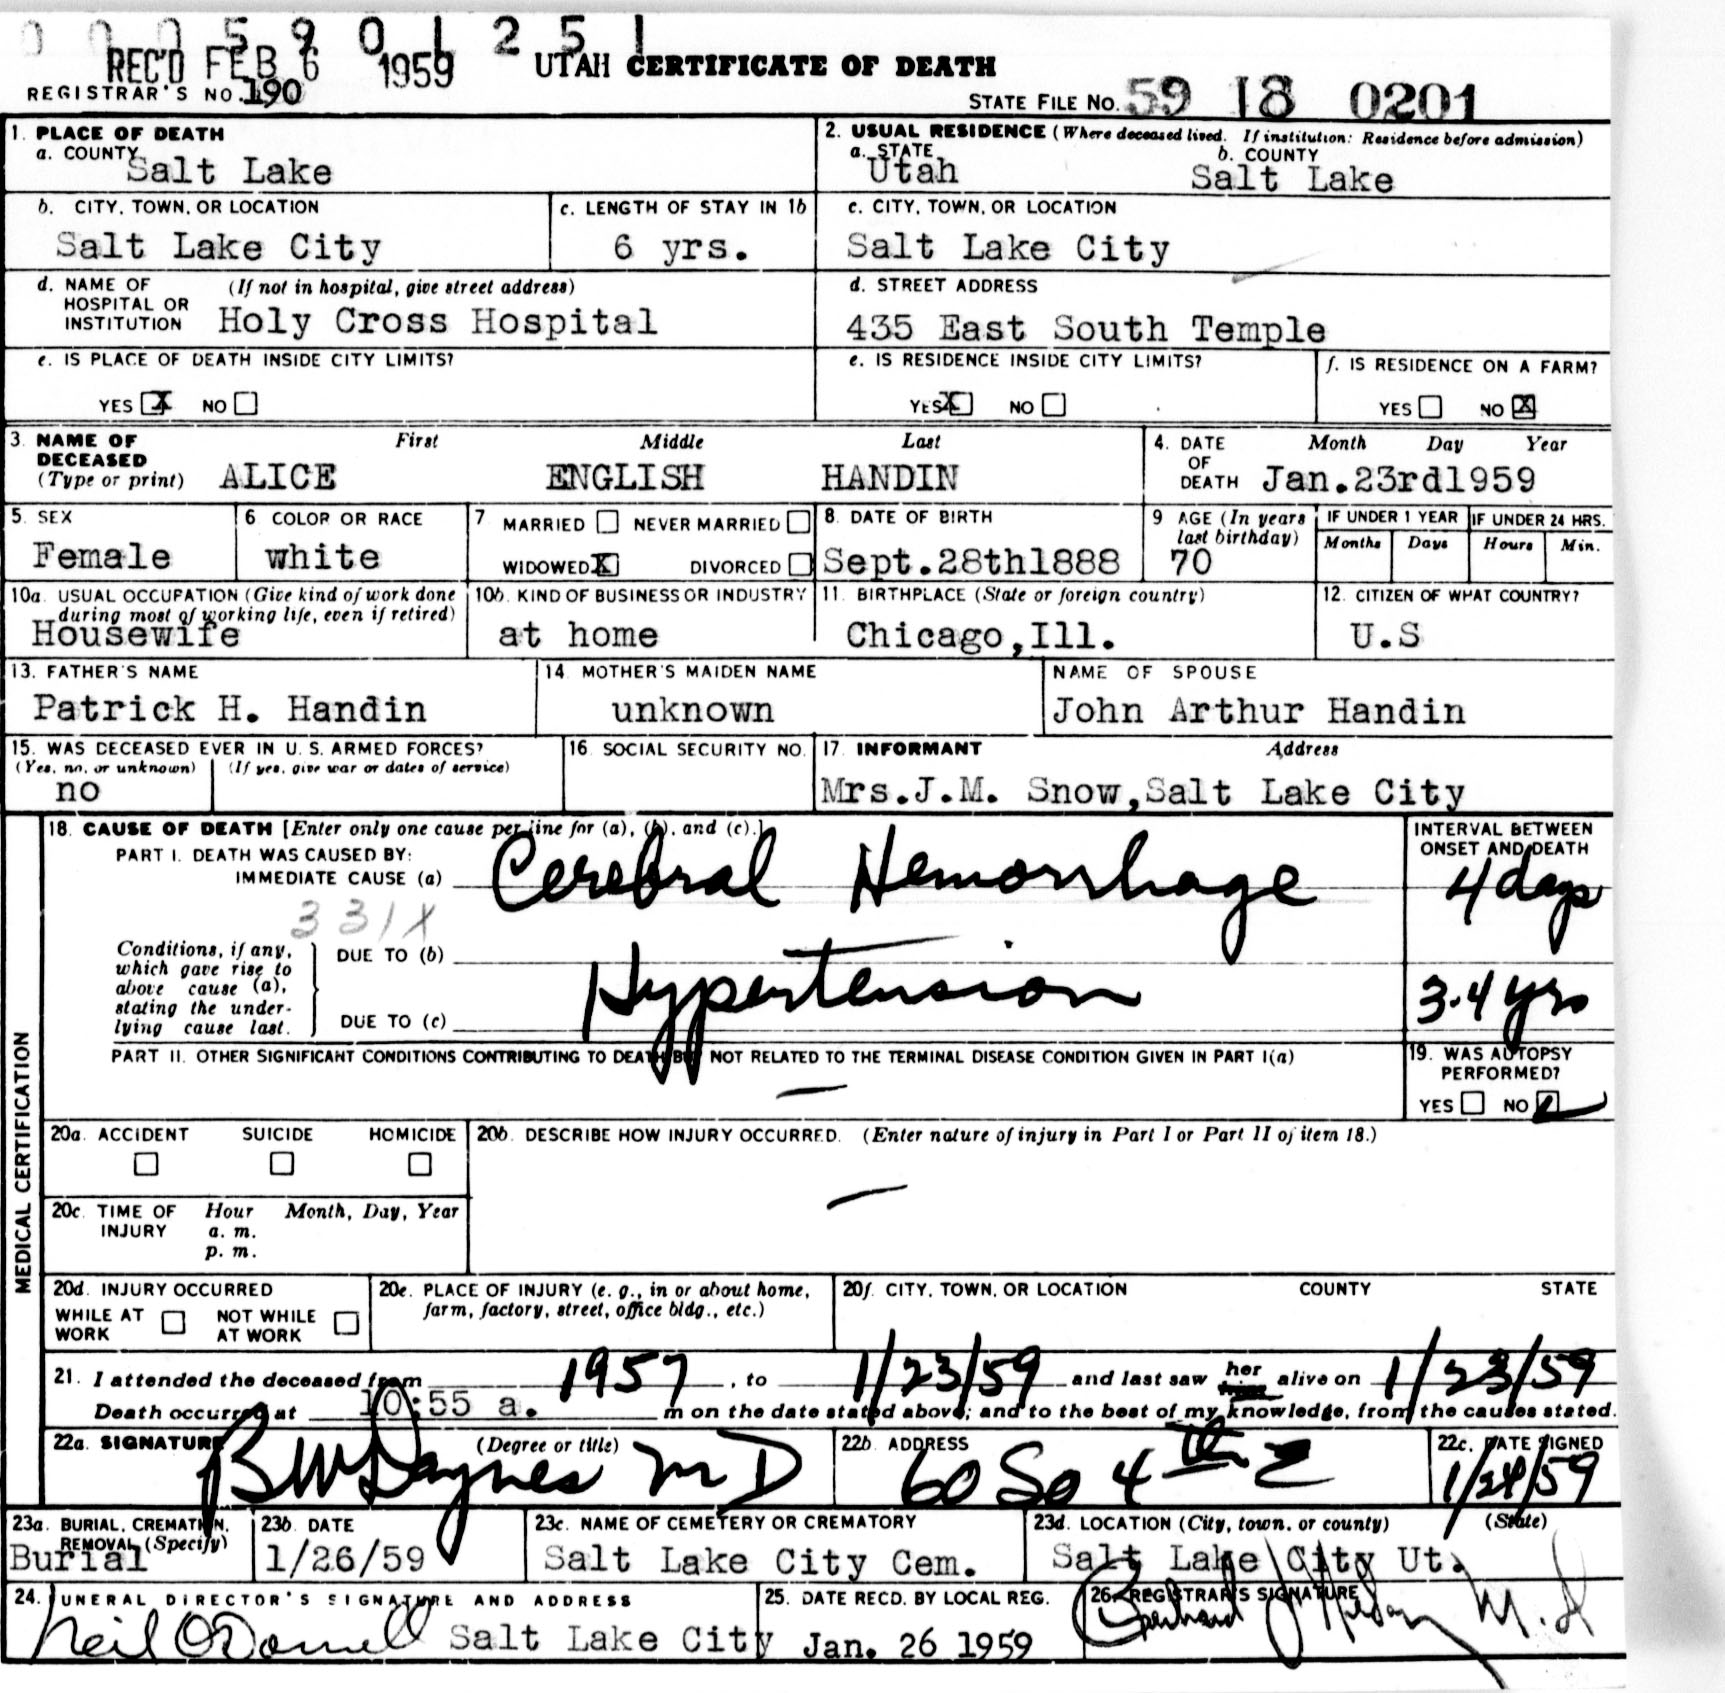 0 0 0 5 9 0 1 2 5 1
REC'D FEB 6 1959 UTAH CERTIFICATE OF DEATH
REGISTRAR'S NO. 190
STATE FILE NO. 59 18 0201
1. PLACE OF DEATH
a. COUNTY Salt Lake
2. USUAL RESIDENCE (Where deceased lived. If institution: Residence before admission)
a. STATE Utah b. COUNTY Salt Lake
b. CITY, TOWN, OR LOCATION Salt Lake City
c. LENGTH OF STAY IN 1b 6 yrs.
c. CITY, TOWN, OR LOCATION Salt Lake City
d. NAME OF HOSPITAL OR INSTITUTION (If not in hospital, give street address) Holy Cross Hospital
d. STREET ADDRESS 435 East South Temple
e. IS PLACE OF DEATH INSIDE CITY LIMITS?
YES X NO
e. IS RESIDENCE INSIDE CITY LIMITS?
YES X NO
f. IS RESIDENCE ON A FARM?
YES NO X
3. NAME OF DECEASED (Type or print) First Middle Last
ALICE ENGLISH HANDIN
4. DATE OF DEATH Month Day Year
Jan.23rd1959
5. SEX Female
6 COLOR OR RACE white
7 MARRIED NEVER MARRIED
WIDOWED X DIVORCED
8. DATE OF BIRTH Sept.28th1888
9 AGE (In years last birthday) 70
IF UNDER 1 YEAR Months Days
IF UNDER 24 HRS. Hours Min.
10a. USUAL OCCUPATION (Give kind of work done during most of working life, even if retired)
Housewife
10b. KIND OF BUSINESS OR INDUSTRY
at home
11. BIRTHPLACE (State or foreign country)
Chicago,Ill.
12. CITIZEN OF WHAT COUNTRY?
U.S
13. FATHER'S NAME
Patrick H. Handin
14. MOTHER'S MAIDEN NAME
unknown
NAME OF SPOUSE
John Arthur Handin
15. WAS DECEASED EVER IN U. S. ARMED FORCES?
(Yes, no, or unknown) (If yes, give war or dates of service)
no
16. SOCIAL SECURITY NO.
17. INFORMANT Address
Mrs.J.M. Snow,Salt Lake City
MEDICAL CERTIFICATION
18. CAUSE OF DEATH [Enter only one cause per line for (a), (b), and (c).]
PART I. DEATH WAS CAUSED BY:
IMMEDIATE CAUSE (a) Cerebral Hemorrhage
INTERVAL BETWEEN ONSET AND DEATH
4 days
331X
Conditions, if any, which gave rise to above cause (a), stating the underlying cause last.
DUE TO (b) Hypertension
3-4 yrs
DUE TO (c)
PART II. OTHER SIGNIFICANT CONDITIONS CONTRIBUTING TO DEATH BUT NOT RELATED TO THE TERMINAL DISEASE CONDITION GIVEN IN PART I(a)
—
19. WAS AUTOPSY PERFORMED?
YES NO
20a. ACCIDENT SUICIDE HOMICIDE
20b. DESCRIBE HOW INJURY OCCURRED. (Enter nature of injury in Part I or Part II of item 18.)
—
20c. TIME OF INJURY Hour Month, Day, Year
a. m.
p. m.
20d. INJURY OCCURRED
WHILE AT WORK NOT WHILE AT WORK
20e. PLACE OF INJURY (e. g., in or about home, farm, factory, street, office bldg., etc.)
20f. CITY, TOWN, OR LOCATION COUNTY STATE
21. I attended the deceased from 1957, to 1/23/59 and last saw her alive on 1/23/59
Death occurred at 10:55 a. m on the date stated above; and to the best of my knowledge, from the causes stated.
22a. SIGNATURE (Degree or title)
B W Daynes M D
22b. ADDRESS
60 So 4th E
22c. DATE SIGNED
1/24/59
23a. BURIAL, CREMATION, REMOVAL (Specify)
Burial
23b. DATE
1/26/59
23c. NAME OF CEMETERY OR CREMATORY
Salt Lake City Cem.
23d. LOCATION (City, town, or county) (State)
Salt Lake City Ut.
24. FUNERAL DIRECTOR'S SIGNATURE AND ADDRESS
Neil O'Donnell Salt Lake City
25. DATE RECD. BY LOCAL REG.
Jan. 26 1959
26. REGISTRAR'S SIGNATURE
M.D